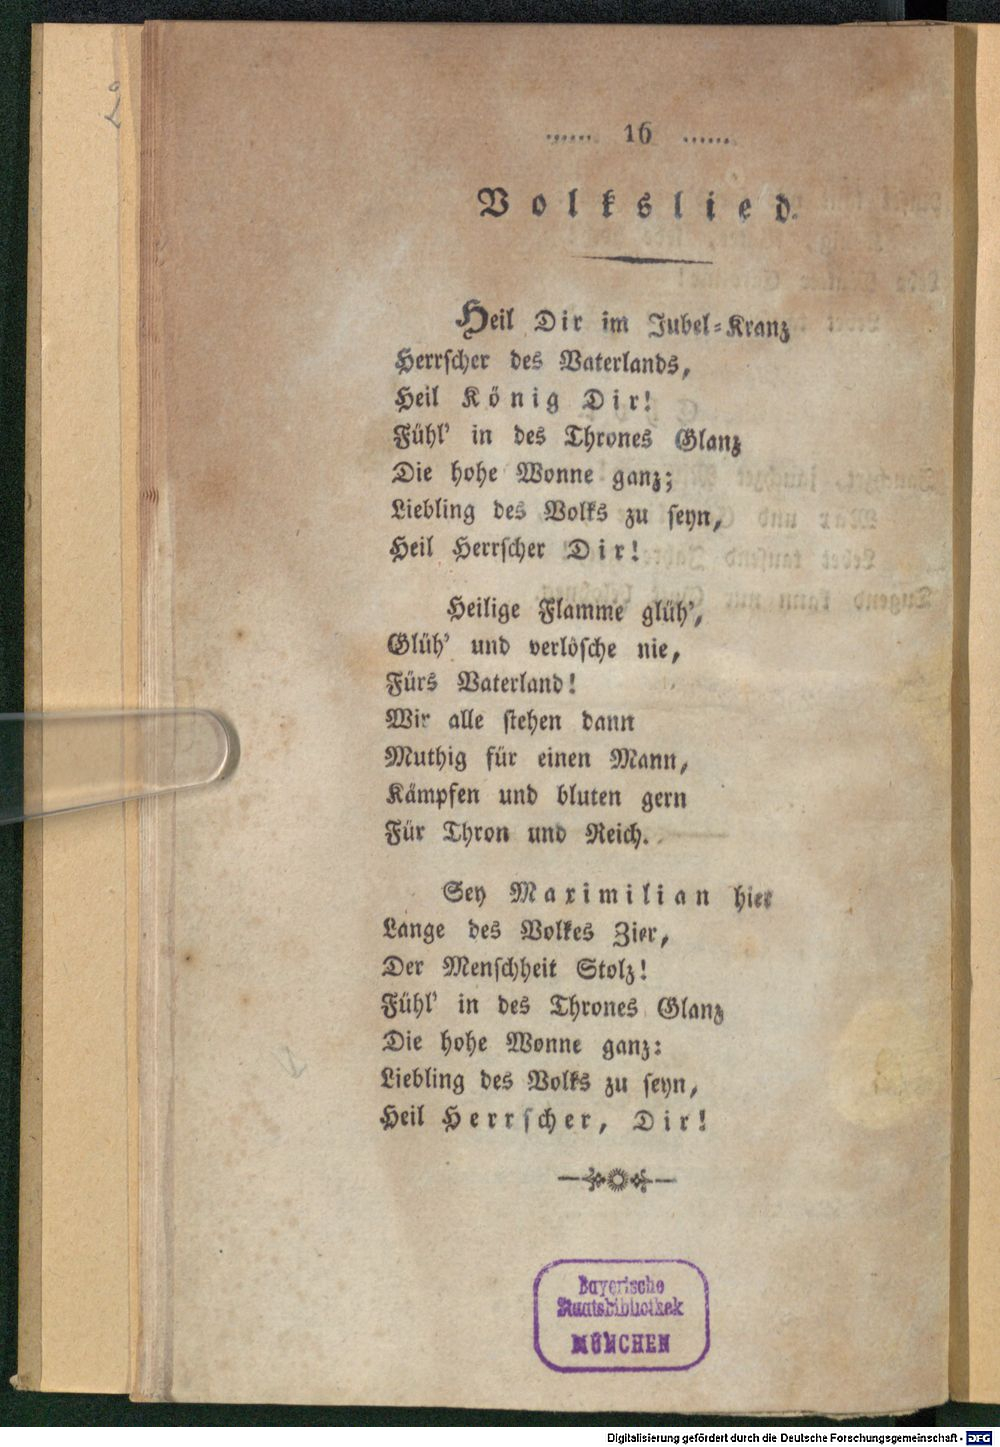 ...... 16 ......
Volkslied.
Heil Dir im Jubel-Kranz
Herrscher des Vaterlands,
Heil König Dir!
Fühl' in des Thrones Glanz
Die hohe Wonne ganz;
Liebling des Volks zu seyn,
Heil Herrscher Dir!
Heilige Flamme glüh',
Glüh' und verlösche nie,
Fürs Vaterland!
Wir alle stehen dann
Muthig für einen Mann,
Kämpfen und bluten gern
Für Thron und Reich.
Sey Maximilian hier
Lange des Volkes Zier,
Der Menschheit Stolz!
Fühl' in des Thrones Glanz
Die hohe Wonne ganz:
Liebling des Volks zu seyn,
Heil Herrscher, Dir!
Bayerische
Staatsbibliothek
MÜNCHEN
Digitalisierung gefördert durch die Deutsche Forschungsgemeinschaft - DFG